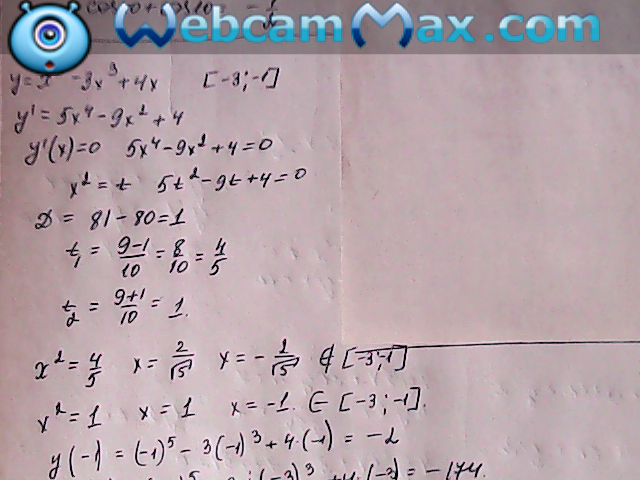 WebcamMax.com
y = x - 3x³ + 4x [-3; -1]
y' = 5x⁴ - 9x² + 4
y'(x) = 0 5x⁴ - 9x² + 4 = 0
x² = t 5t² - 9t + 4 = 0
D = 81 - 80 = 1
t₁ = (9-1)/10 = 8/10 = 4/5
t₂ = (9+1)/10 = 1.
x² = 4/5 x = 2/√5 x = -2/√5 ∉ [-3; -1]
x² = 1 x = 1 x = -1 ∈ [-3; -1].
y(-1) = (-1)⁵ - 3(-1)³ + 4·(-1) = -2
(-3)³ + 4·(-3) = -174.